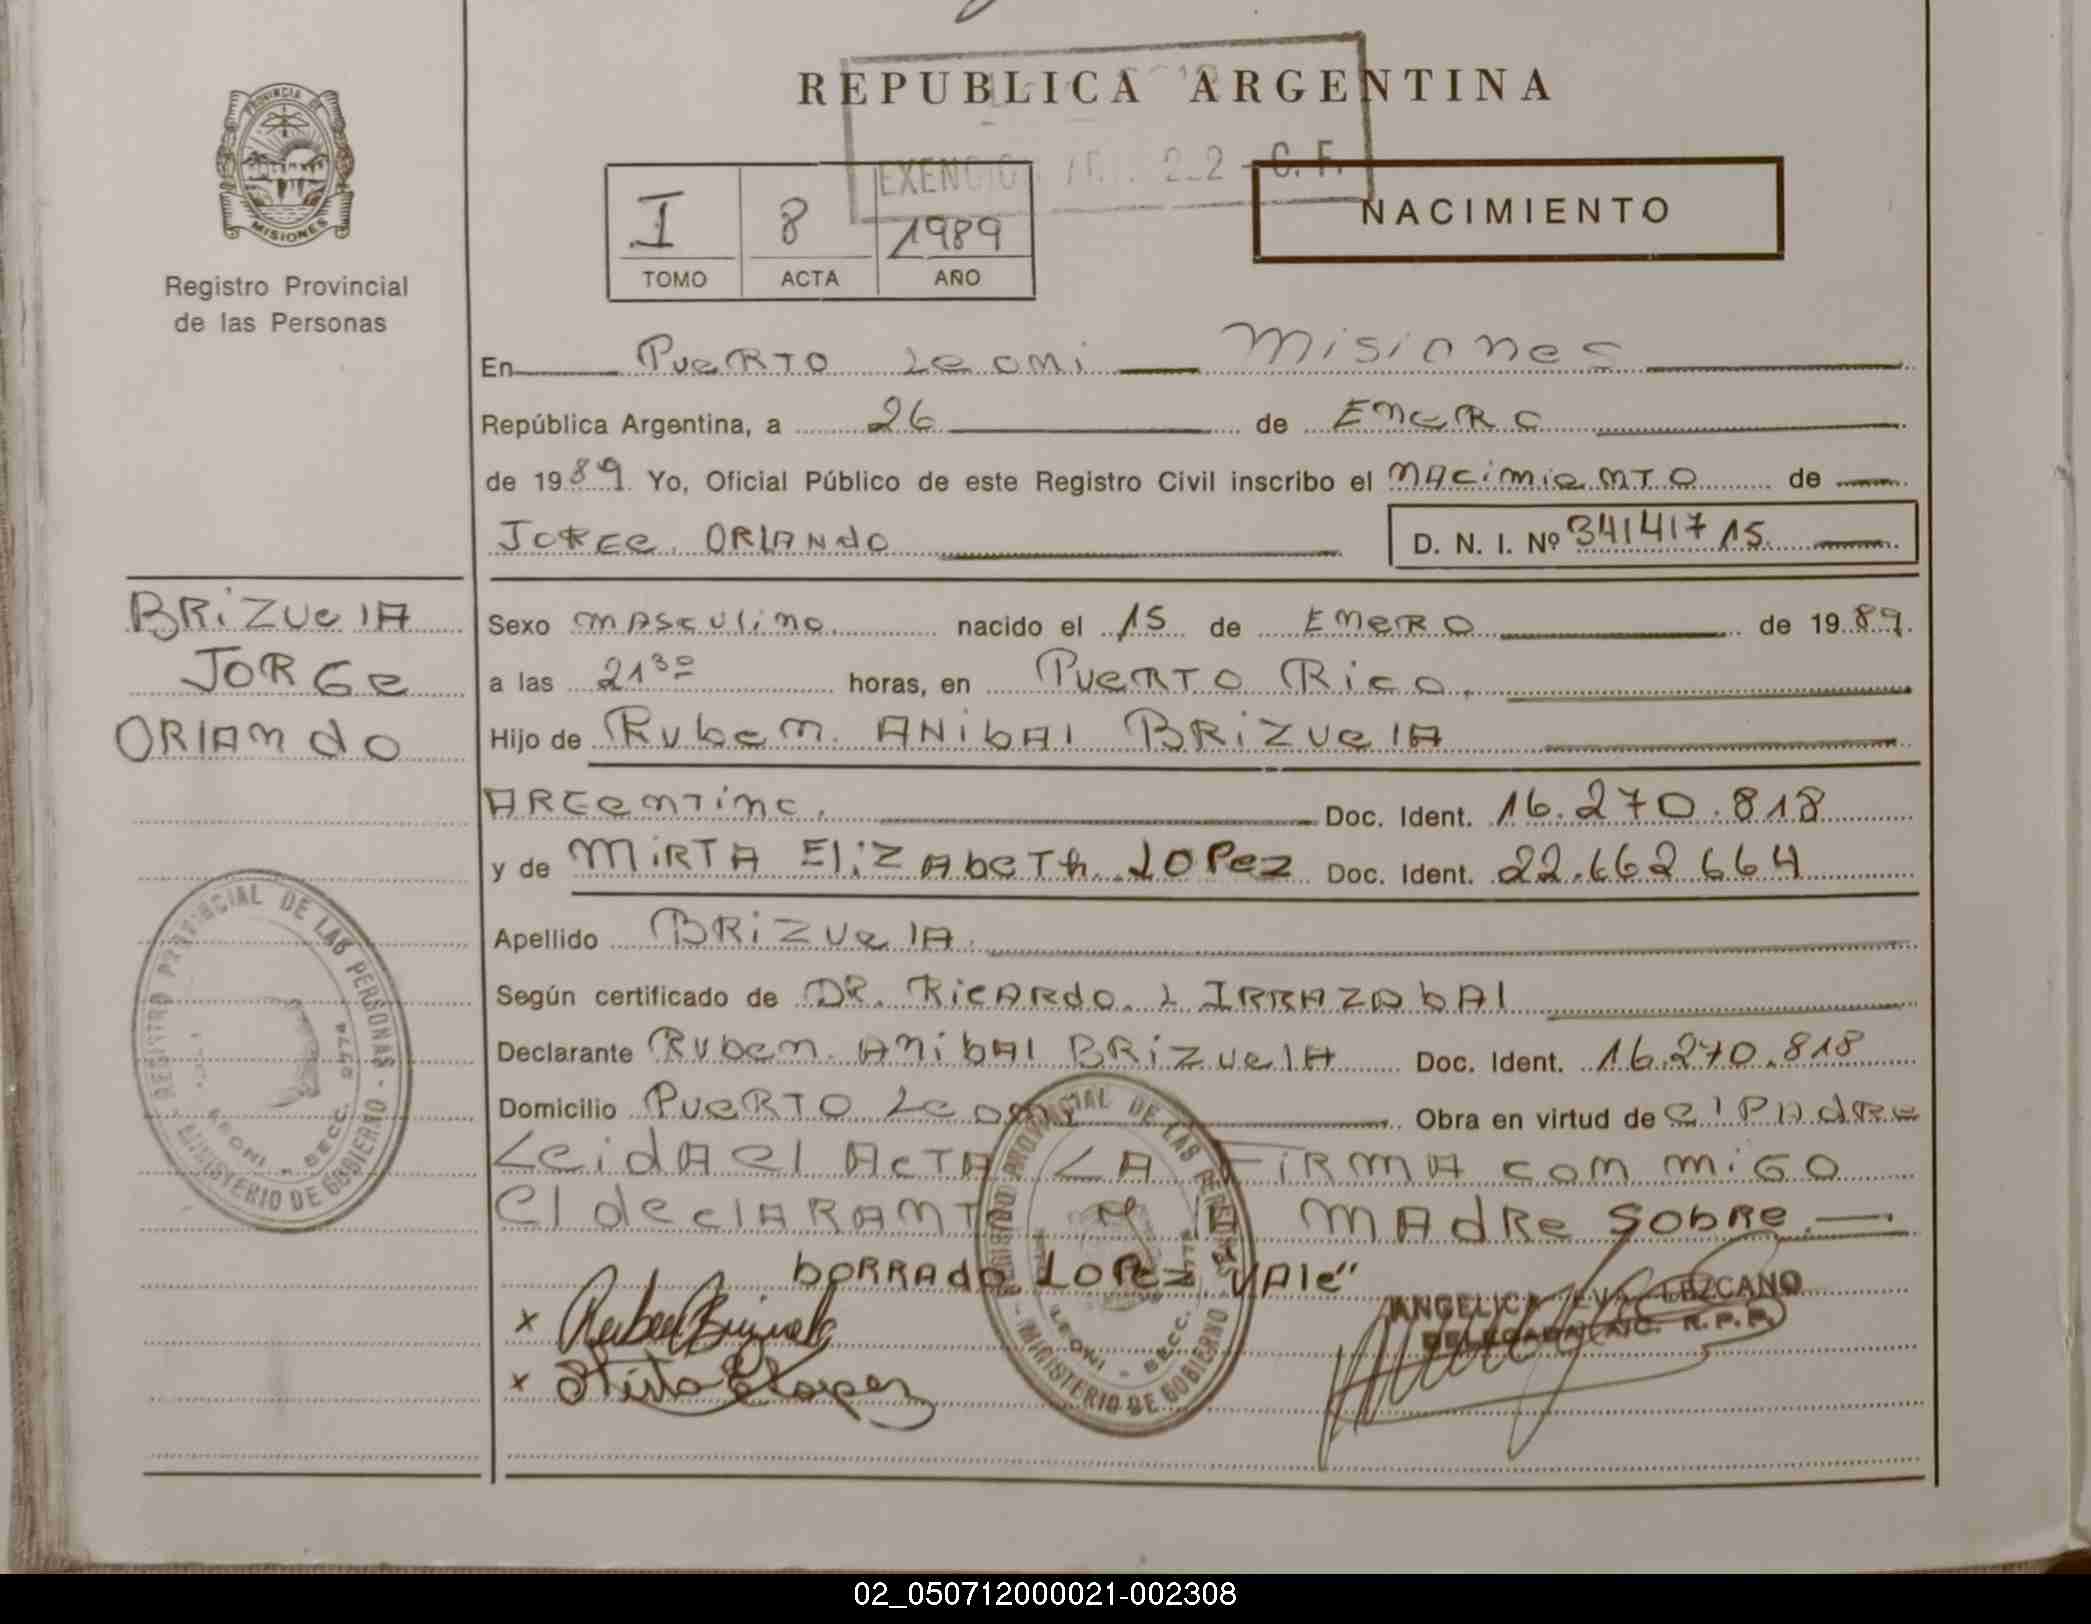 REPUBLICA ARGENTINA
PROVINCIA DE
MISIONES
Registro Provincial
de las Personas
EXENC 222 - C. F.
I 8 1989
TOMO ACTA AÑO
NACIMIENTO
En Puerto Leoni Misiones
República Argentina, a 26 de Enero
de 1989 Yo, Oficial Público de este Registro Civil inscribo el nacimiento de
Jorge Orlando D. N. I. Nº 34141715
BRizuelA
JORGe
ORlAndo
Sexo masculino nacido el 15 de Enero de 1989.
a las 21³⁰ horas, en Puerto Rico.
Hijo de Ruben ANibAl BRizuelA
ARGentino. Doc. Ident. 16.270.818
y de MiRTA ElizAbeTh LOPez Doc. Ident. 22.662 664
Apellido BRizuelA.
Según certificado de DR. RicARdo. L IRRAZAbAl
Declarante Ruben ANibAl BRizuelA Doc. Ident. 16.270.818
Domicilio PueRTO Leoni Obra en virtud de el PAdRe
Leida el ActA LA FiRMA con miGO
El declARAnTe y lA MAdRe SobRe.
boRRAdo LOPez VAle"
x Ruben Brizuela
x Mirta E Lopez
ANGELICA EVA LEZCANO
DELEGADA A/C. R.P.P.
REGISTRO PROVINCIAL DE LAS PERSONAS - MINISTERIO DE GOBIERNO -
LEONI - SECC.
REGISTRO PROVINCIAL DE LAS PERSONAS - MINISTERIO DE GOBIERNO -
LEONI - SECC.
02_050712000021-002308